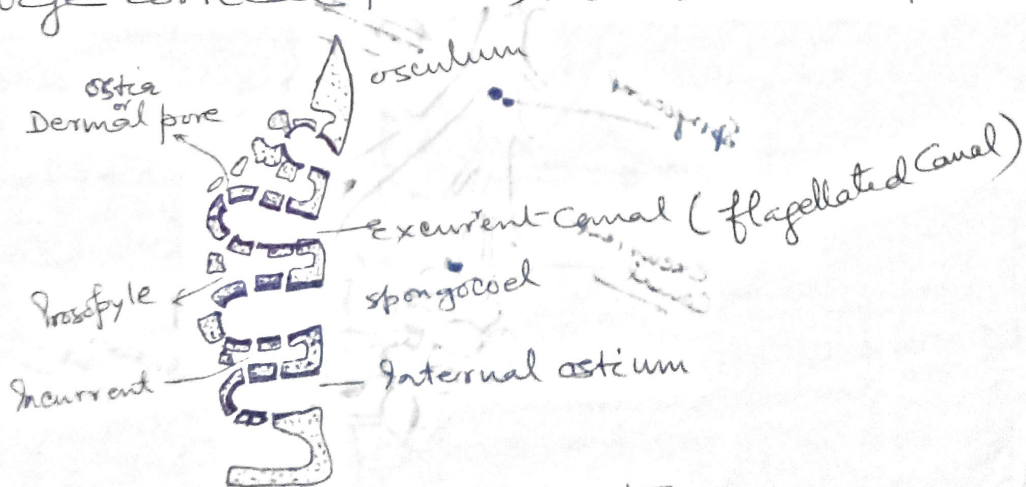 osculum
ostia
or
Dermal pore
excurrent canal (flagellated canal)
Prosopyle
spongocoel
Incurrent
Internal ostium